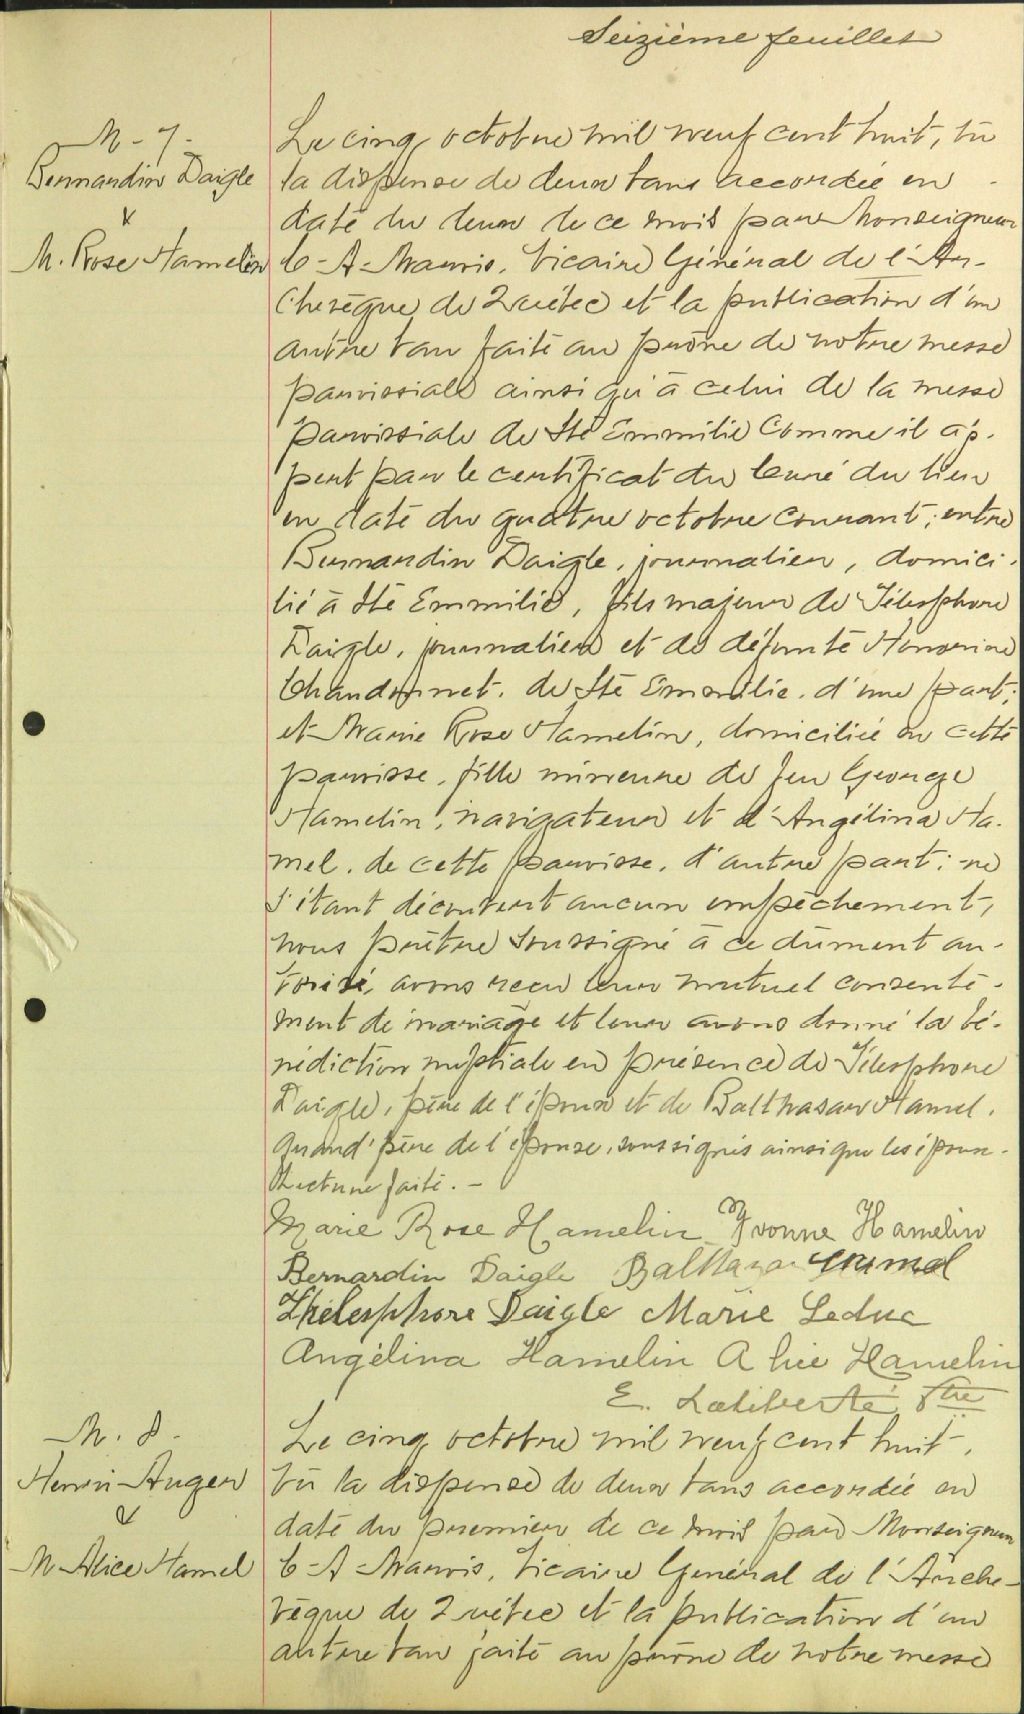 Seizième feuillet
M - 7 -
Bernardin Daigle
&
M. Rose Hamelin
Le cinq octobre mil neuf cent huit, vu
la dispense de deux bans accordée en
date du deux de ce mois par Monseigneur
C - A - Marois, Vicaire Général de l'Ar-
chevêque de Québec et la publication d'un
autre ban faite au prône de notre messe
paroissiale ainsi qu'à celui de la messe
paroissiale de Ste Emmilie comme il ap-
pert par le certificat du Curé du lieu
en date du quatre octobre courant; entre
Bernardin Daigle, journalier, domici-
lié à Ste Emmilie, fils majeur de Télesphore
Daigle, journalier et de défunte Honorine
Chandonnet, de Ste Emmilie, d'une part;
et Marie Rose Hamelin, domiciliée en cette
paroisse, fille mineure de feu George
Hamelin, navigateur et d'Angélina Ha-
mel, de cette paroisse, d'autre part; ne
s'étant découvert aucun empêchement,
nous prêtre soussigné à ce dûment au-
torisé, avons reçu leur mutuel consente-
ment de mariage et leur avons donné la bé-
nédiction nuptiale en présence de Télesphore
Daigle, père de l'époux et de Balthasar Hamel,
grand'père de l'épouse, soussignés ainsi que les époux.
Lecture faite. -
Marie Rose Hamelin M Yvonne Hamelin
Bernardin Daigle Balthazar Hamel
Thélesphore Daigle Marie Leduc
Angélina Hamelin Alice Hamelin
E. Laliberté Ptre
M. 8 -
Henri Auger
&
M Alice Hamel
Le cinq octobre mil neuf cent huit,
vu la dispense de deux bans accordée en
date du premier de ce mois par Monseigneur
C - A - Marois, Vicaire Général de l'Arche-
vêque de Québec et la publication d'un
autre ban faite au prône de notre messe